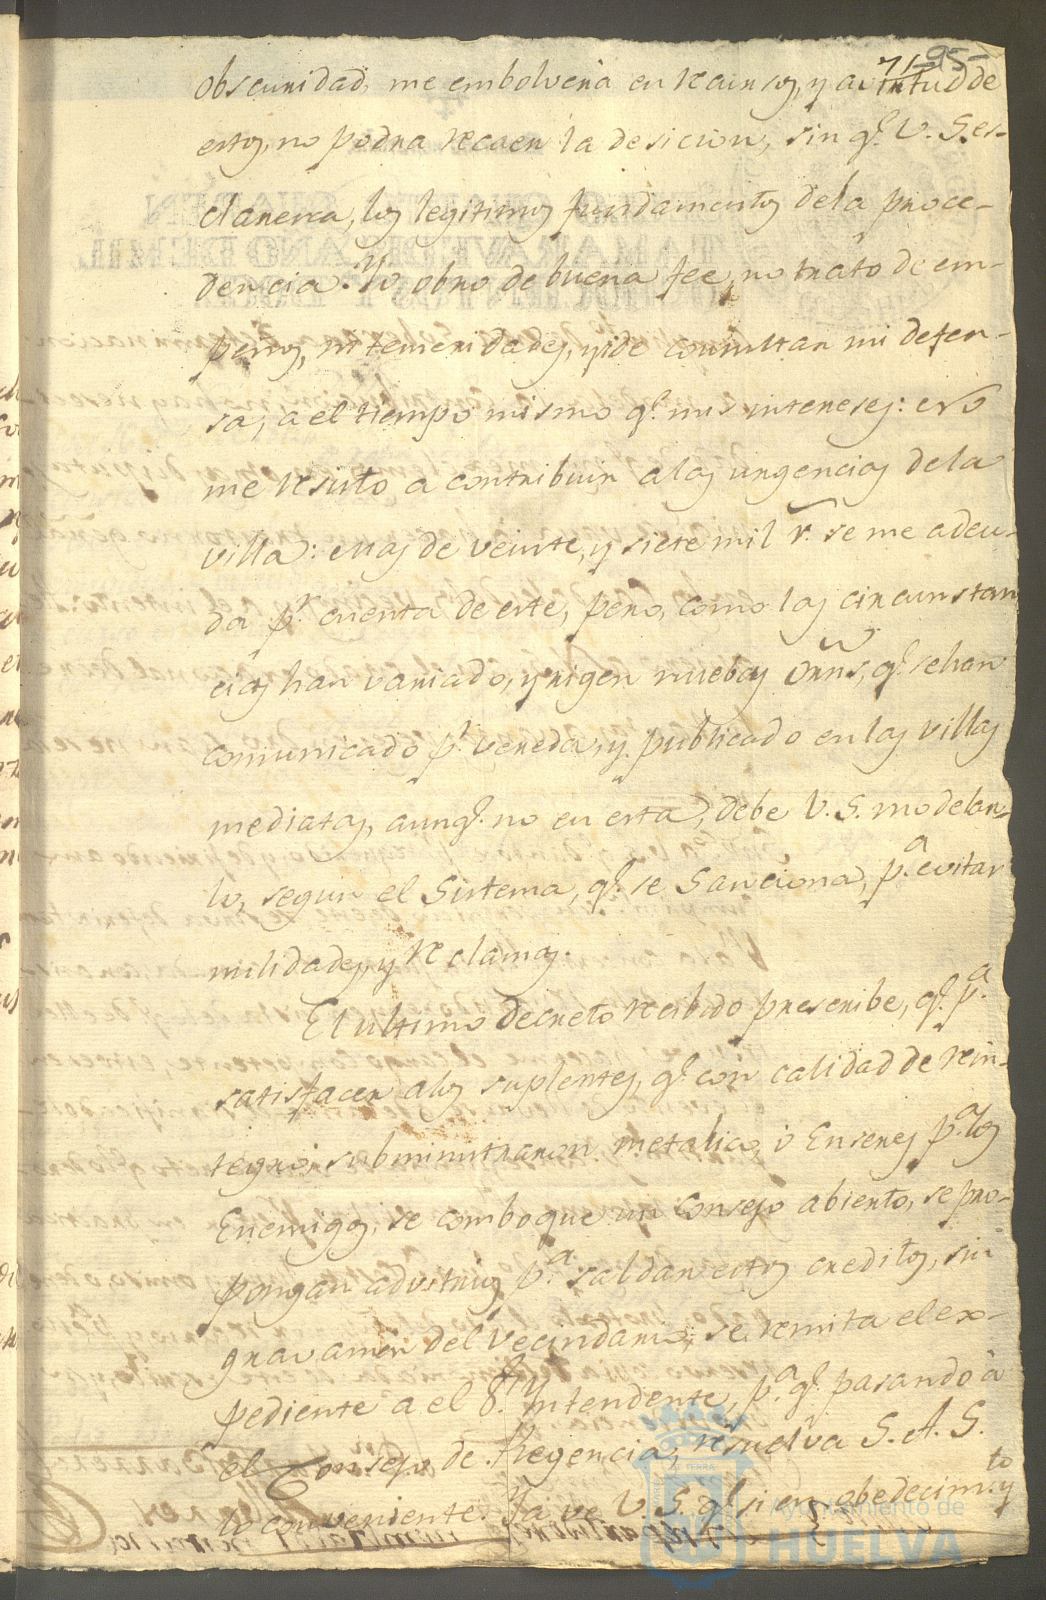 71 -95-
obscuridad, me embolveria en recursos, y a virtud de
estos, no podra recaer la desicion, sin q.e V. S. es-
claresca, los legitimos fundamentos de la proce-
dencia. Yo obro de buena fee, no trato de em-
peños, ni temeridades, y de consultar mi defen-
sa, a el tiempo mismo q.e mis intereses:
me resisto a contribuir a las urgencias de la
villa: mas de veinte, y siete mil r.s se me adeu-
da p.r cuenta de este, pero, como las circunstan
cias han variado, y rigen nuebas orns, q.e se han
comunicado p.r vereda, y publicado en las villas
mediatas, aunq.e no en esta, debe V. S. modelar-
lo, segun el Sistema, q.e se Sanciona, p.a evitar
nulidades, y reclamos.
El ultimo decreto recibido prescribe, q.e p.a
satisfacer a los suplentes, q.e con calidad de rein-
tegro, subministraron metalico, ó Enseres p.a los
Enemigos, se comboque un Consejo abierto, se pro-
pongan advitrios p.a saldar estos creditos, sin
gravamen del Vecindario, se remita el ex-
pediente a el S.r Yntendente, p.a q.e pasando à
el Consejo de Regencia, resuelva S. A. S.
lo conveniente. Ya ve V. S. q.e si en obedecim.to y
Ayuntamiento de
HUELVA